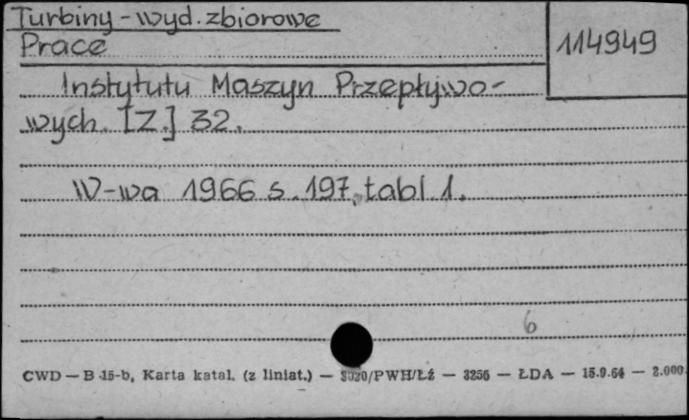 Turbiny - wyd. zbiorowe
Prace
114949
Instytutu Maszyn Przepływo-
wych. [Z.] 32.
W-wa 1966 s. 197, tabl. 1.
6
CWD — B 15-b, Karta katal. (z liniat.) — 3020/PWH/Łź — 3256 — ŁDA — 15.9.64 — 2.000